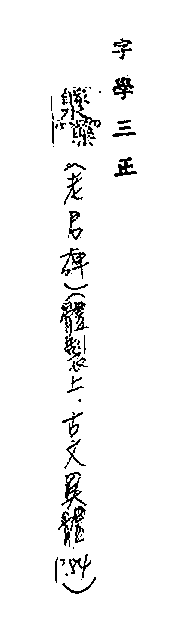 字學三正
《老君碑》(體製上．古文異體P.84)